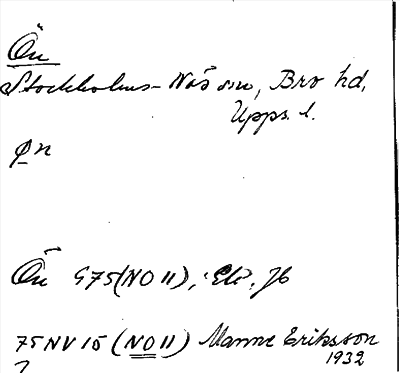 Ön
Stockholms-Näs sn, Bro hd,
Upps. l.
ø̱n
Ön G75 (NO 11), Jb
75 NV 15 (NO 11) Manne Eriksson
1932